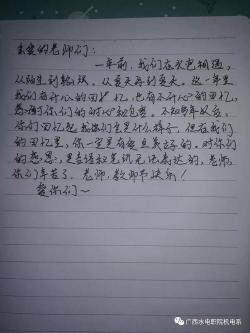 亲爱的老师们：
一年前，我们在水电相遇，
从陌生到熟络。从夏天再到夏天。这一年里
我们有开心的回忆，也有不开心的回忆，
感谢你们的耐心和包容。不知多年以后，
你们回忆起我们会是什么样子。但在我们
的回忆里，你一定是有爱且美好的。对你们
的感恩，是言语和笔纸无法表达的，老师，
你们辛苦了，老师，教师节快乐！
爱你们～
广西水电职院机电系